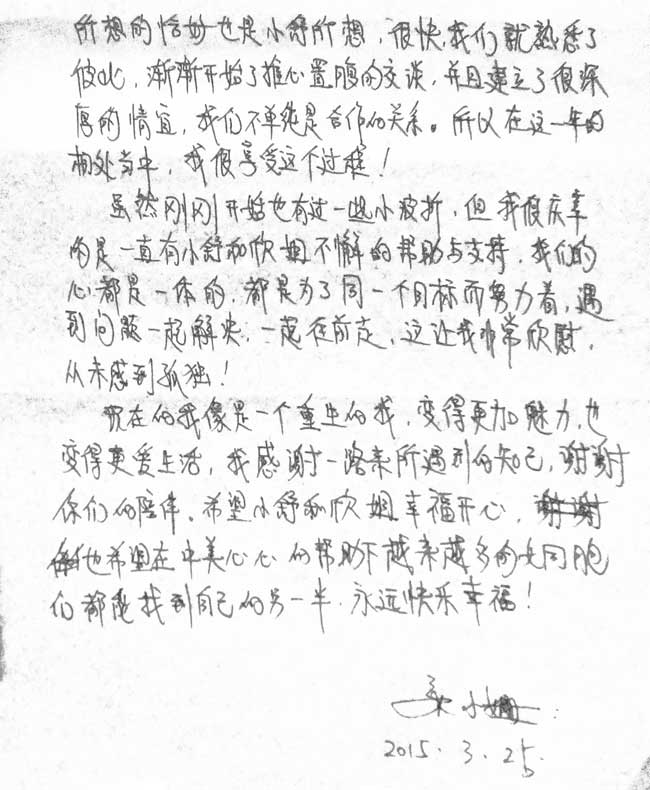 所想的恰好也是小舒所想，很快，我们就熟悉了
彼此，渐渐开始了推心置腹的交谈，并且建立了很深
厚的情宜，我们不单纯是合作的关系。所以在这一年的
相处当中，我很享受这个过程！
虽然刚刚开始也有过一些小波折，但我很庆幸
的是一直有小舒和欣姻不懈的帮助与支持，我们的
心都是一体的，都是为了同一个目标而努力着，遇
到问题一起解决，一起往前走，这让我非常欣慰，
从未感到孤独！
现在的我像是一个重生的我，变得更加魅力，也
变得更爱生活，我感谢一路来所遇到的知己，谢谢
你们的陪伴。希望小舒和欣姻幸福开心，
也希望在中美心心的帮助下越来越多的女同胞
们都能找到自己的另一半，永远快乐幸福！
小
2015.3.25.